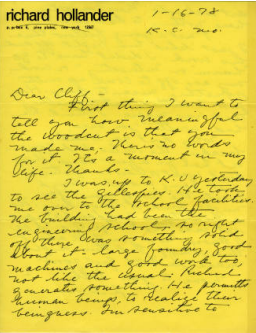 richard hollander
1-16-78
K.C. Mo.
Dear Cliff -
First thing I want to
tell you how meaningful
the woodcut is that you
made me. There's no words
for it. It's a moment in my
life. Thanks.
I was up to K.U. yesterday
to see the Gillespies. He took
me over to the school facilities.
The building had been the
engineering school, so right
off there was something solid
about it - large foundry, good
machines and good work too,
not like the usual. Richard
generates something. He permits
human beings, to realize their
beingness. I'm sensitive to